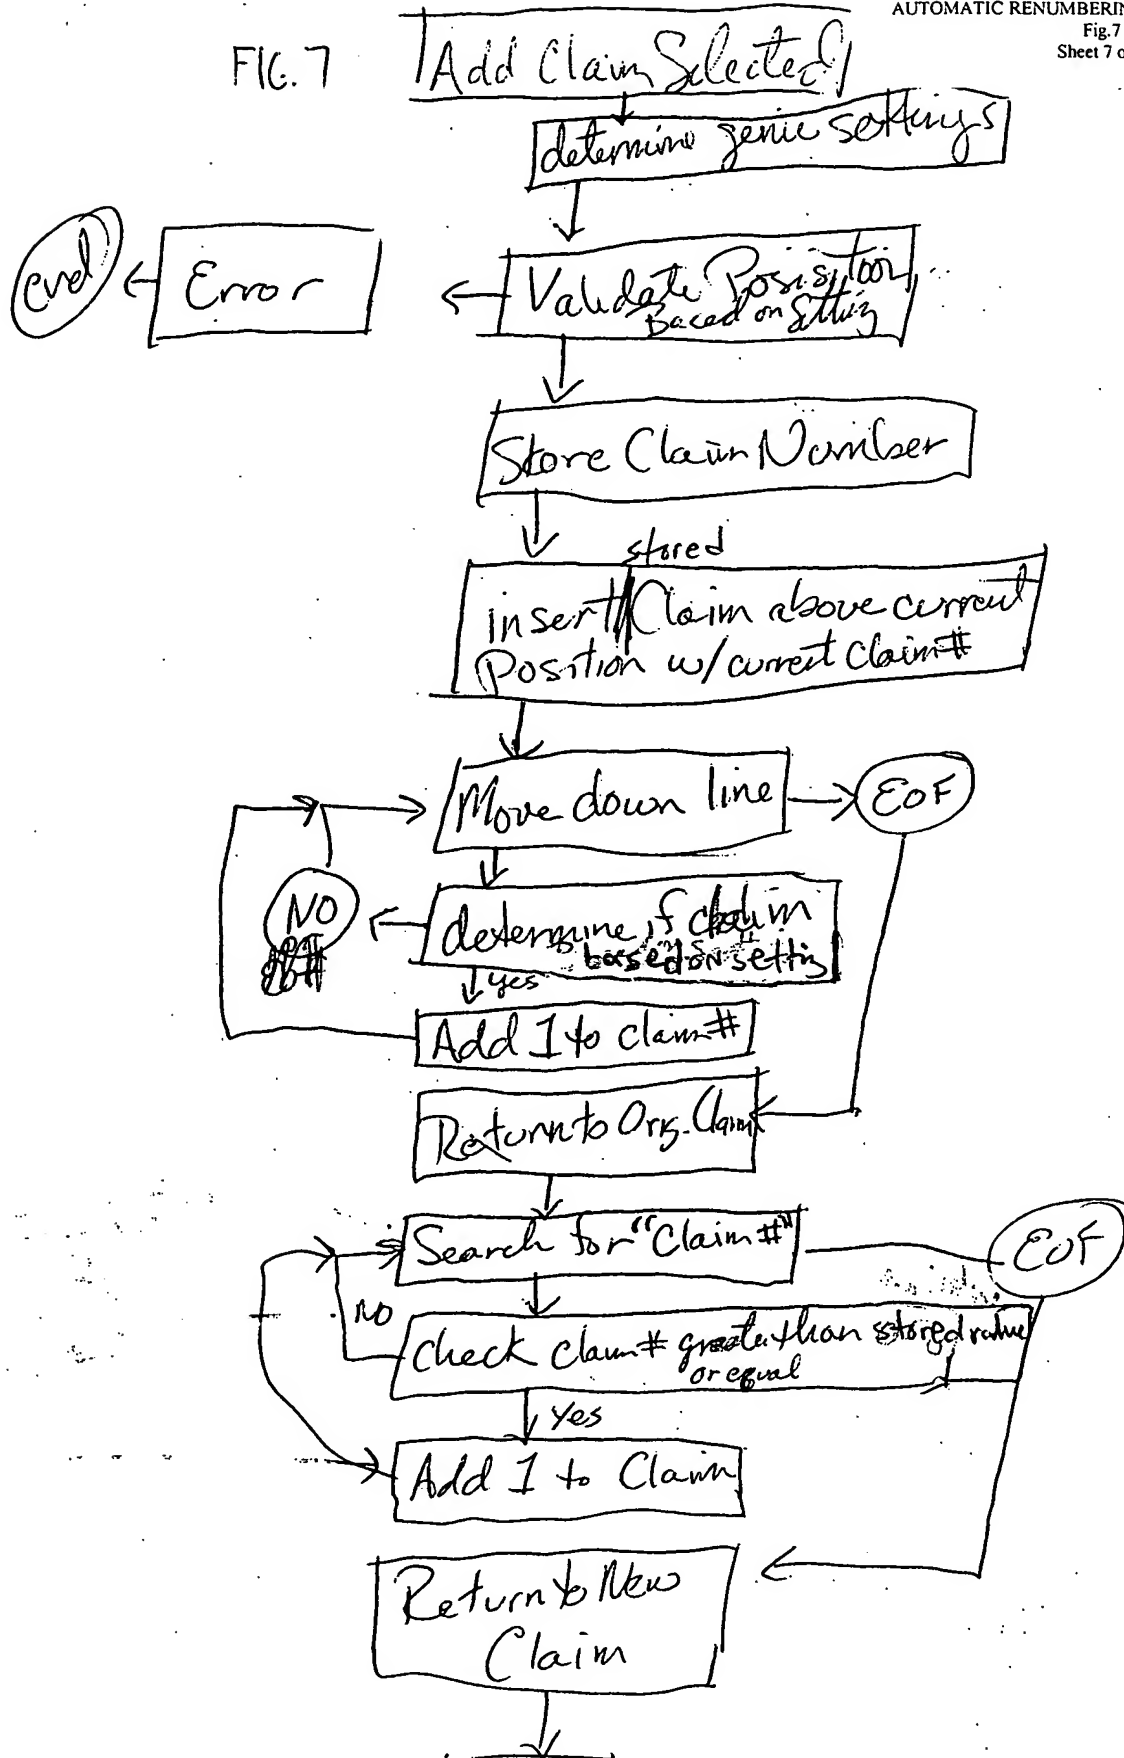 AUTOMATIC RENUMBERIN
Fig.7
Sheet 7 o
FIG. 7
Add Claim Selected
determine genie settings
Validate Posisition
Based on Setting
Error
end
Store Claim Number
stored
insert Claim above current
Position w/current Claim#
Move down line
EOF
NO
determine if claim
based on setting
yes
Add 1 to claim#
Return to Orig. Claim
Search for "Claim #"
EOF
NO
Check claim# greater than stored value
or equal
Yes
Add 1 to Claim
Return to New
Claim